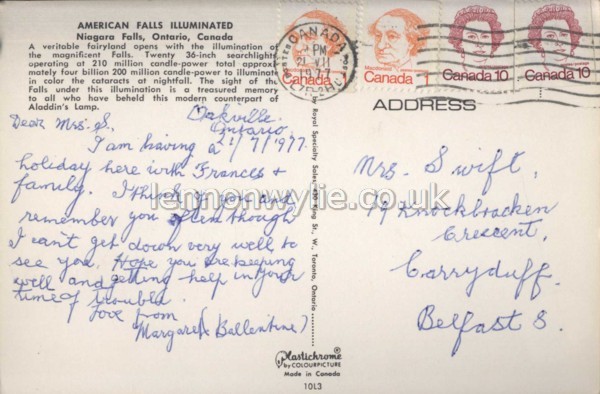 AMERICAN FALLS ILLUMINATED
Niagara Falls, Ontario, Canada
A veritable fairyland opens with the illumination of
the magnificent Falls. Twenty 36-inch searchlights
operating at 210 million candle-power total approx
mately four billion 200 million candle-power to illuminate
in color the cataracts at nightfall. The sight of the
Falls under this illumination is a treasured memory
to all who have beheld this modern counterpart of
Aladdin's Lamp.
Oakville,
Ontario
21/7/1977.
Dear Mrs. S.,
I am having a
holiday here with Frances &
family. I think of you and
remember you often though
I can't get down very well to
see you. Hope you are keeping
well and getting help in your
time of trouble.
Love from
Margaret Ballentine)
by Royal Specialty Sales, 430 King St., W., Toronto, Ontario
Plastichrome
by COLOURPICTURE
Made in Canada
10L3
CANADA
PM
21 VII
1977
Canada
Canada 1
Canada 10
Canada 10
ADDRESS
Mrs. Swift,
79 Knockbracken
Crescent,
Carryduff,
Belfast 8.
lennonwylie.co.uk